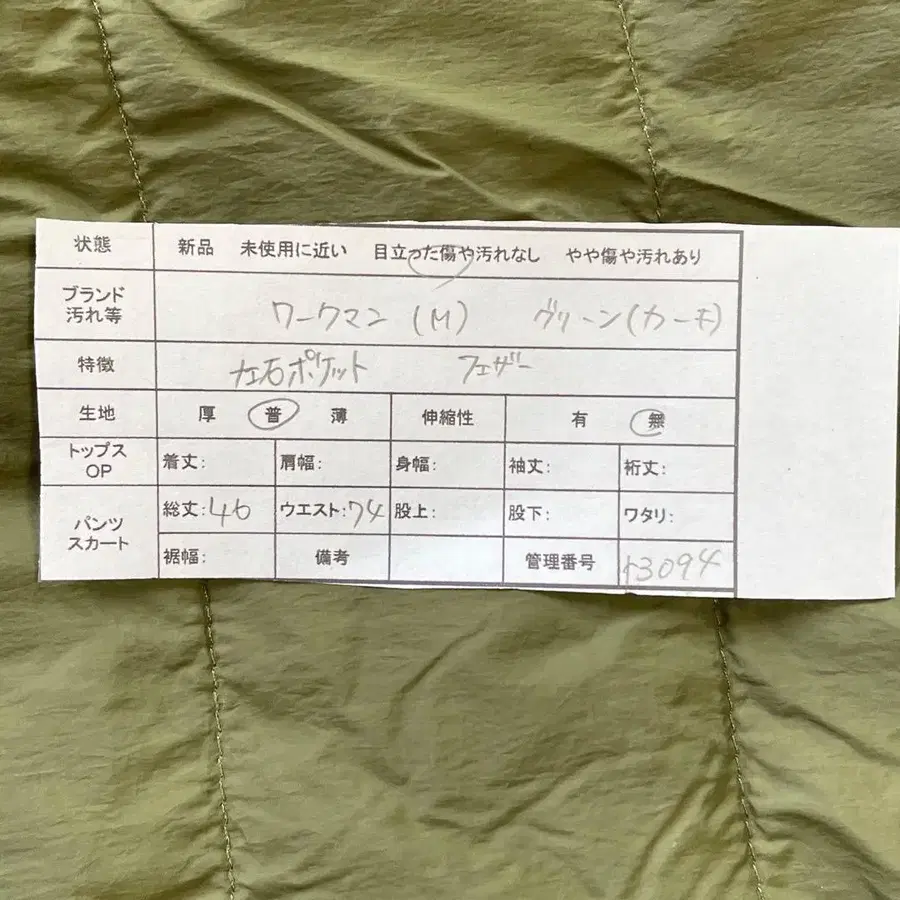 状態 新品 未使用に近い 目立った傷や汚れなし やや傷や汚れあり
ブランド 汚れ等 ワークマン (M) グリーン(カーキ)
特徴 左右ポケット フェザー
生地 厚 普 薄 伸縮性 有 無
トップス OP 着丈: 肩幅: 身幅: 袖丈: 裄丈:
パンツ スカート 総丈:46 ウエスト:74 股上: 股下: ワタリ:
裾幅: 備考 管理番号 3094